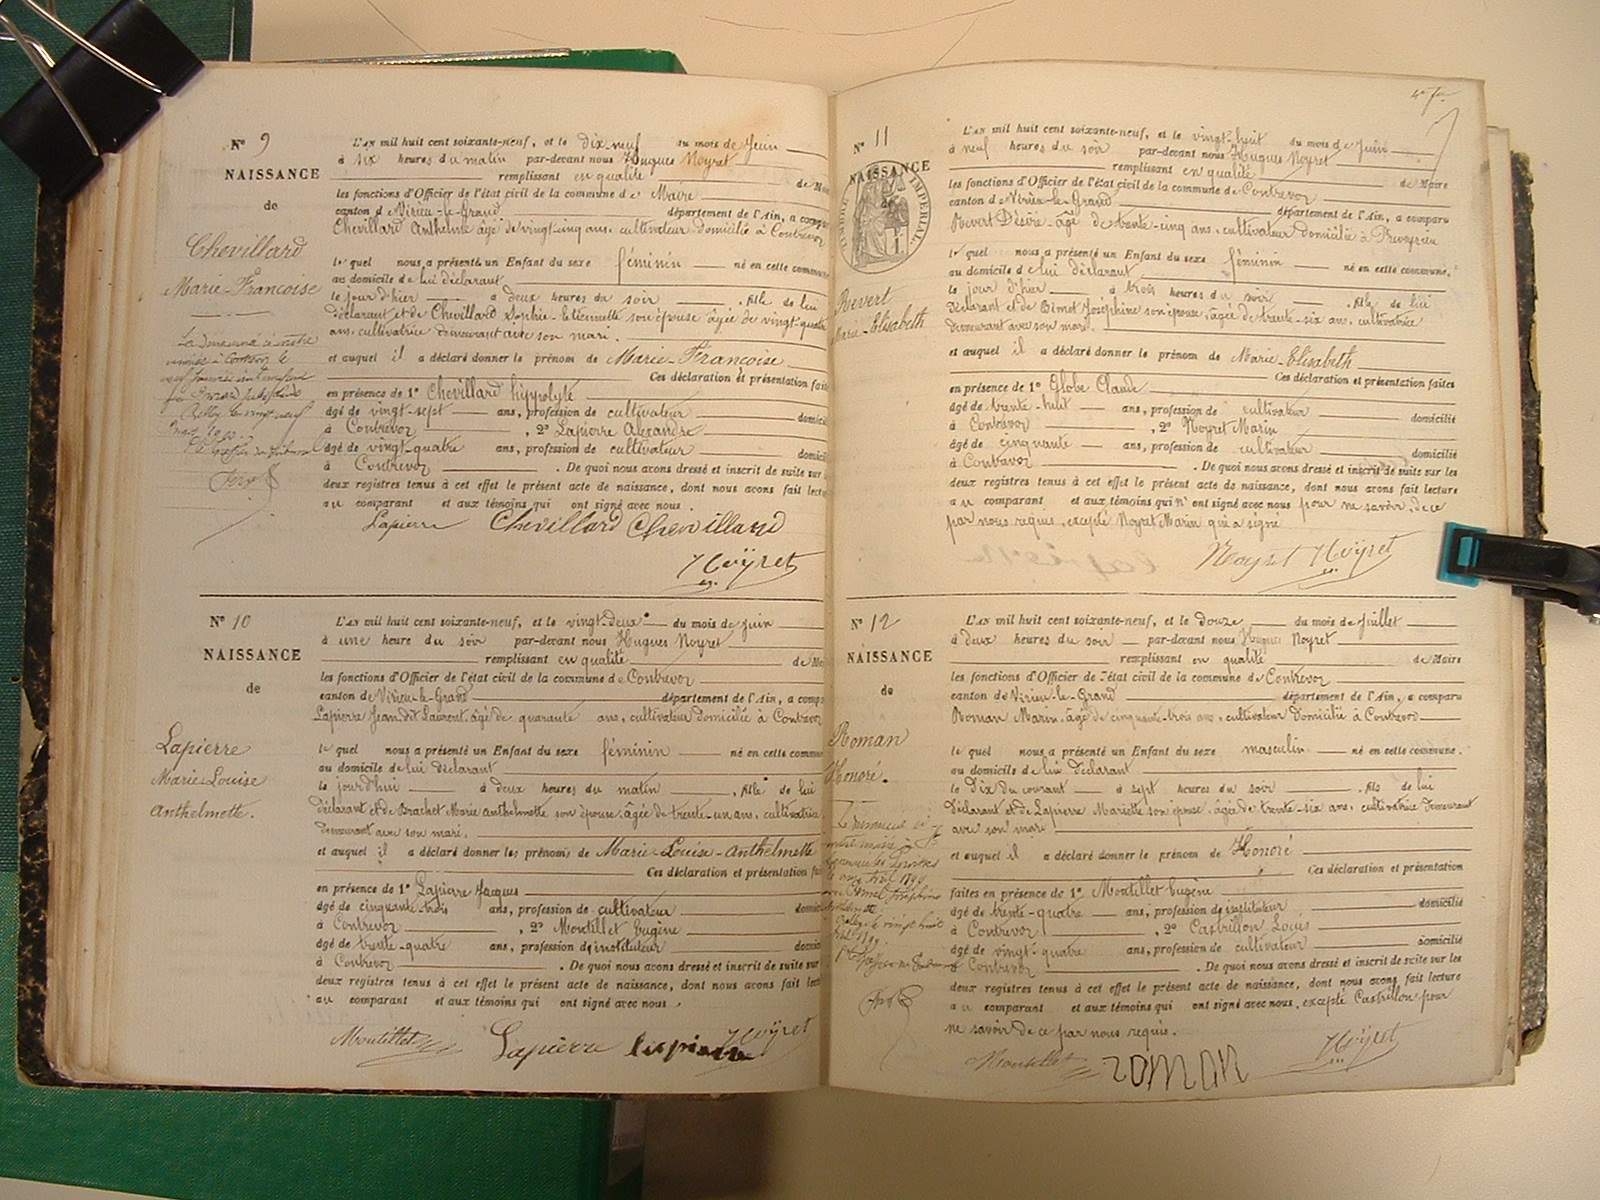 N° 9
NAISSANCE
de
Chevillard
Marie-Francoise
L'AN mil huit cent soixante-neuf, et le dix neuf du mois de Juin
à six heures du matin par-devant nous Hugues Noyret
remplissant en qualité de M
les fonctions d'Officier de l'état civil de la commune de Maire
canton de Virieu-le-Grand département de l'Ain, a compa
Chevillard Anthelme âgé de vingt-cinq ans, cultivateur domicilié à Contrevoz
lequel nous a présenté un Enfant du sexe féminin né en cette commune
au domicile de lui déclarant
le jour d'hier à deux heures du soir, fille de lui
déclarant et de Chevillard Sophie-Etiennette son épouse âgée de vingt-quatre
ans, cultivatrice demeurant avec son mari.
et auquel il a déclaré donner le prénom de Marie-Francoise
Ces déclaration et présentation faites
en présence de 1° Chevillard hippolyte
âgé de vingt-sept ans, profession de cultivateur domicilié
à Contrevoz, 2° Lapierre Alexandre
âgé de vingt-quatre ans, profession de cultivateur domici
à Contrevoz. De quoi nous avons dressé et inscrit de suite sur l
deux registres tenus à cet effet le présent acte de naissance, dont nous avons fait lectu
au comparant et aux témoins qui ont signé avec nous.
Lapierre Chevillard Chevillard
Noÿret
N° 10
NAISSANCE
de
Lapierre
Marie-Louise
Anthelmette.
L'AN mil huit cent soixante-neuf, et le vingt-deux du mois de Juin
à une heure du soir par-devant nous Hugues Noyret
remplissant en qualité de M
les fonctions d'Officier de l'état civil de la commune de Contrevoz
canton de Virieu-le-Grand département de l'Ain, a comp
Lapierre Jean dit Laurent, âgé de quarante ans, cultivateur domicilié à Contrevoz
lequel nous a présenté un Enfant du sexe féminin né en cette commu
au domicile de lui déclarant
le jourd'hui à deux heures du matin, fille de lui
déclarant et de Brachet Marie Anthelmette son épouse, âgée de trente-un ans, cultivatrice
demeurant avec son mari.
et auquel il a déclaré donner les prénoms de Marie-Louise-Anthelmette
Ces déclaration et présentation fai
en présence de 1° Lapierre Jacques
âgé de cinquante-trois ans, profession de cultivateur domici
à Contrevoz, 2° Montillet Eugène
âgé de trente-quatre ans, profession d'instituteur domici
à Contrevoz. De quoi nous avons dressé et inscrit de suite sur
deux registres tenus à cet effet le présent acte de naissance, dont nous avons fait lect
au comparant et aux témoins qui ont signé avec nous.
Montillet Lapierre lapierre Noÿret
N° 11
NAISSANCE
TIMBRE IMPERIAL
Revert
Marie-Elisabeth
L'AN mil huit cent soixante-neuf, et le vingt-huit du mois de Juin
à neuf heures du soir par-devant nous Hugues Noyret
remplissant en qualité de Maire
les fonctions d'Officier de l'état civil de la commune de Contrevoz
canton de Virieu-le-Grand département de l'Ain, a comparu
Revert Désiré âgé de trente-cinq ans, cultivateur domicilié à
lequel nous a présenté un Enfant du sexe féminin né en cette commune,
au domicile de lui déclarant
le jour d'hier à trois heures du soir, fille de lui
déclarant et de Joséphine son épouse, âgée de trente-six ans, cultivatrice
demeurant avec son mari.
et auquel il a déclaré donner le prénom de Marie-Elisabeth
Ces déclaration et présentation faites
en présence de 1° Globe Claude
âgé de trente-huit ans, profession de cultivateur domicilié
à Contrevoz, 2° Noyret Marin
âgé de cinquante ans, profession de cultivateur domicilié
à Contrevoz. De quoi nous avons dressé et inscrit de suite sur les
deux registres tenus à cet effet le présent acte de naissance, dont nous avons fait lecture
au comparant et aux témoins qui n'ont signé avec nous pour ne savoir, de ce
par nous requis, excepté Noyret Marin qui a signé
Noyret Noÿret
N° 12
NAISSANCE
de
Roman
Honoré.
L'AN mil huit cent soixante-neuf, et le douze du mois de Juillet
à deux heures du soir par-devant nous Hugues Noyret
remplissant en qualité de Maire
les fonctions d'Officier de l'état civil de la commune de Contrevoz
canton de Virieu-le-Grand département de l'Ain, a comparu
Roman Marin, âgé de cinquante-trois ans, cultivateur domicilié à Contrevoz
lequel nous a présenté un Enfant du sexe masculin né en cette commune.
au domicile de lui déclarant
le dix du courant à sept heures du soir, fils de lui
déclarant et de Lapierre Mariette son épouse, âgée de trente-six ans, cultivatrice demeurant
avec son mari
et auquel il a déclaré donner le prénom de Honoré
Ces déclaration et présentation
faites en présence de 1° Montillet Eugène
âgé de trente-quatre ans, profession d'instituteur domicilié
à Contrevoz, 2° Castrillon Louis
âgé de vingt-quatre ans, profession de cultivateur domicilié
à Contrevoz. De quoi nous avons dressé et inscrit de suite sur les
deux registres tenus à cet effet le présent acte de naissance, dont nous avons fait lecture
au comparant et aux témoins qui ont signé avec nous, excepté Castrillon pour
ne savoir de ce par nous requis.
Montillet roman Noÿret